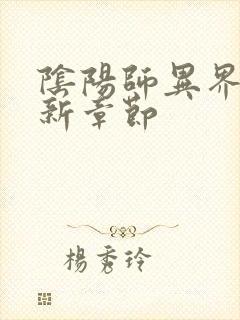 陰陽師異界
新章節
楊秀玲